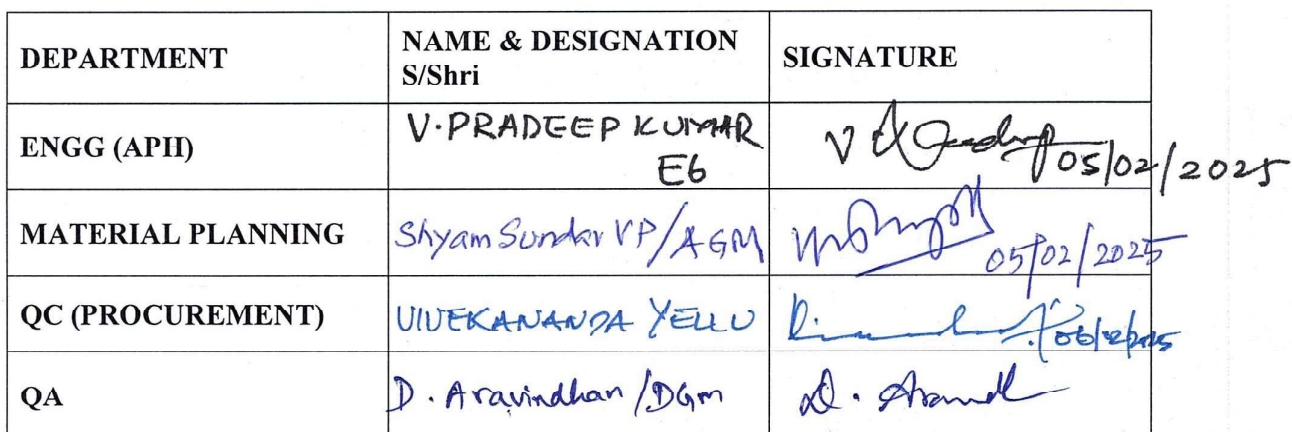 DEPARTMENT
NAME & DESIGNATION
S/Shri
SIGNATURE
ENGG (APH)
V. PRADEEP KUMAR
E6
05/02/2025
MATERIAL PLANNING
Shyam Sundar VP/AGM
05/02/2025
QC (PROCUREMENT)
VIVEKANANDA YELLU
06/02/2025
QA
D. Aravindhan/DGm